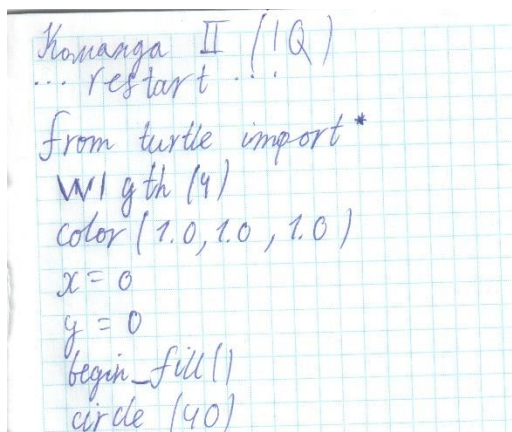 Команда II (IQ)
... restart ...
from turtle import *
width (4)
color (1.0, 1.0, 1.0)
x = 0
y = 0
begin_fill()
circle (40)